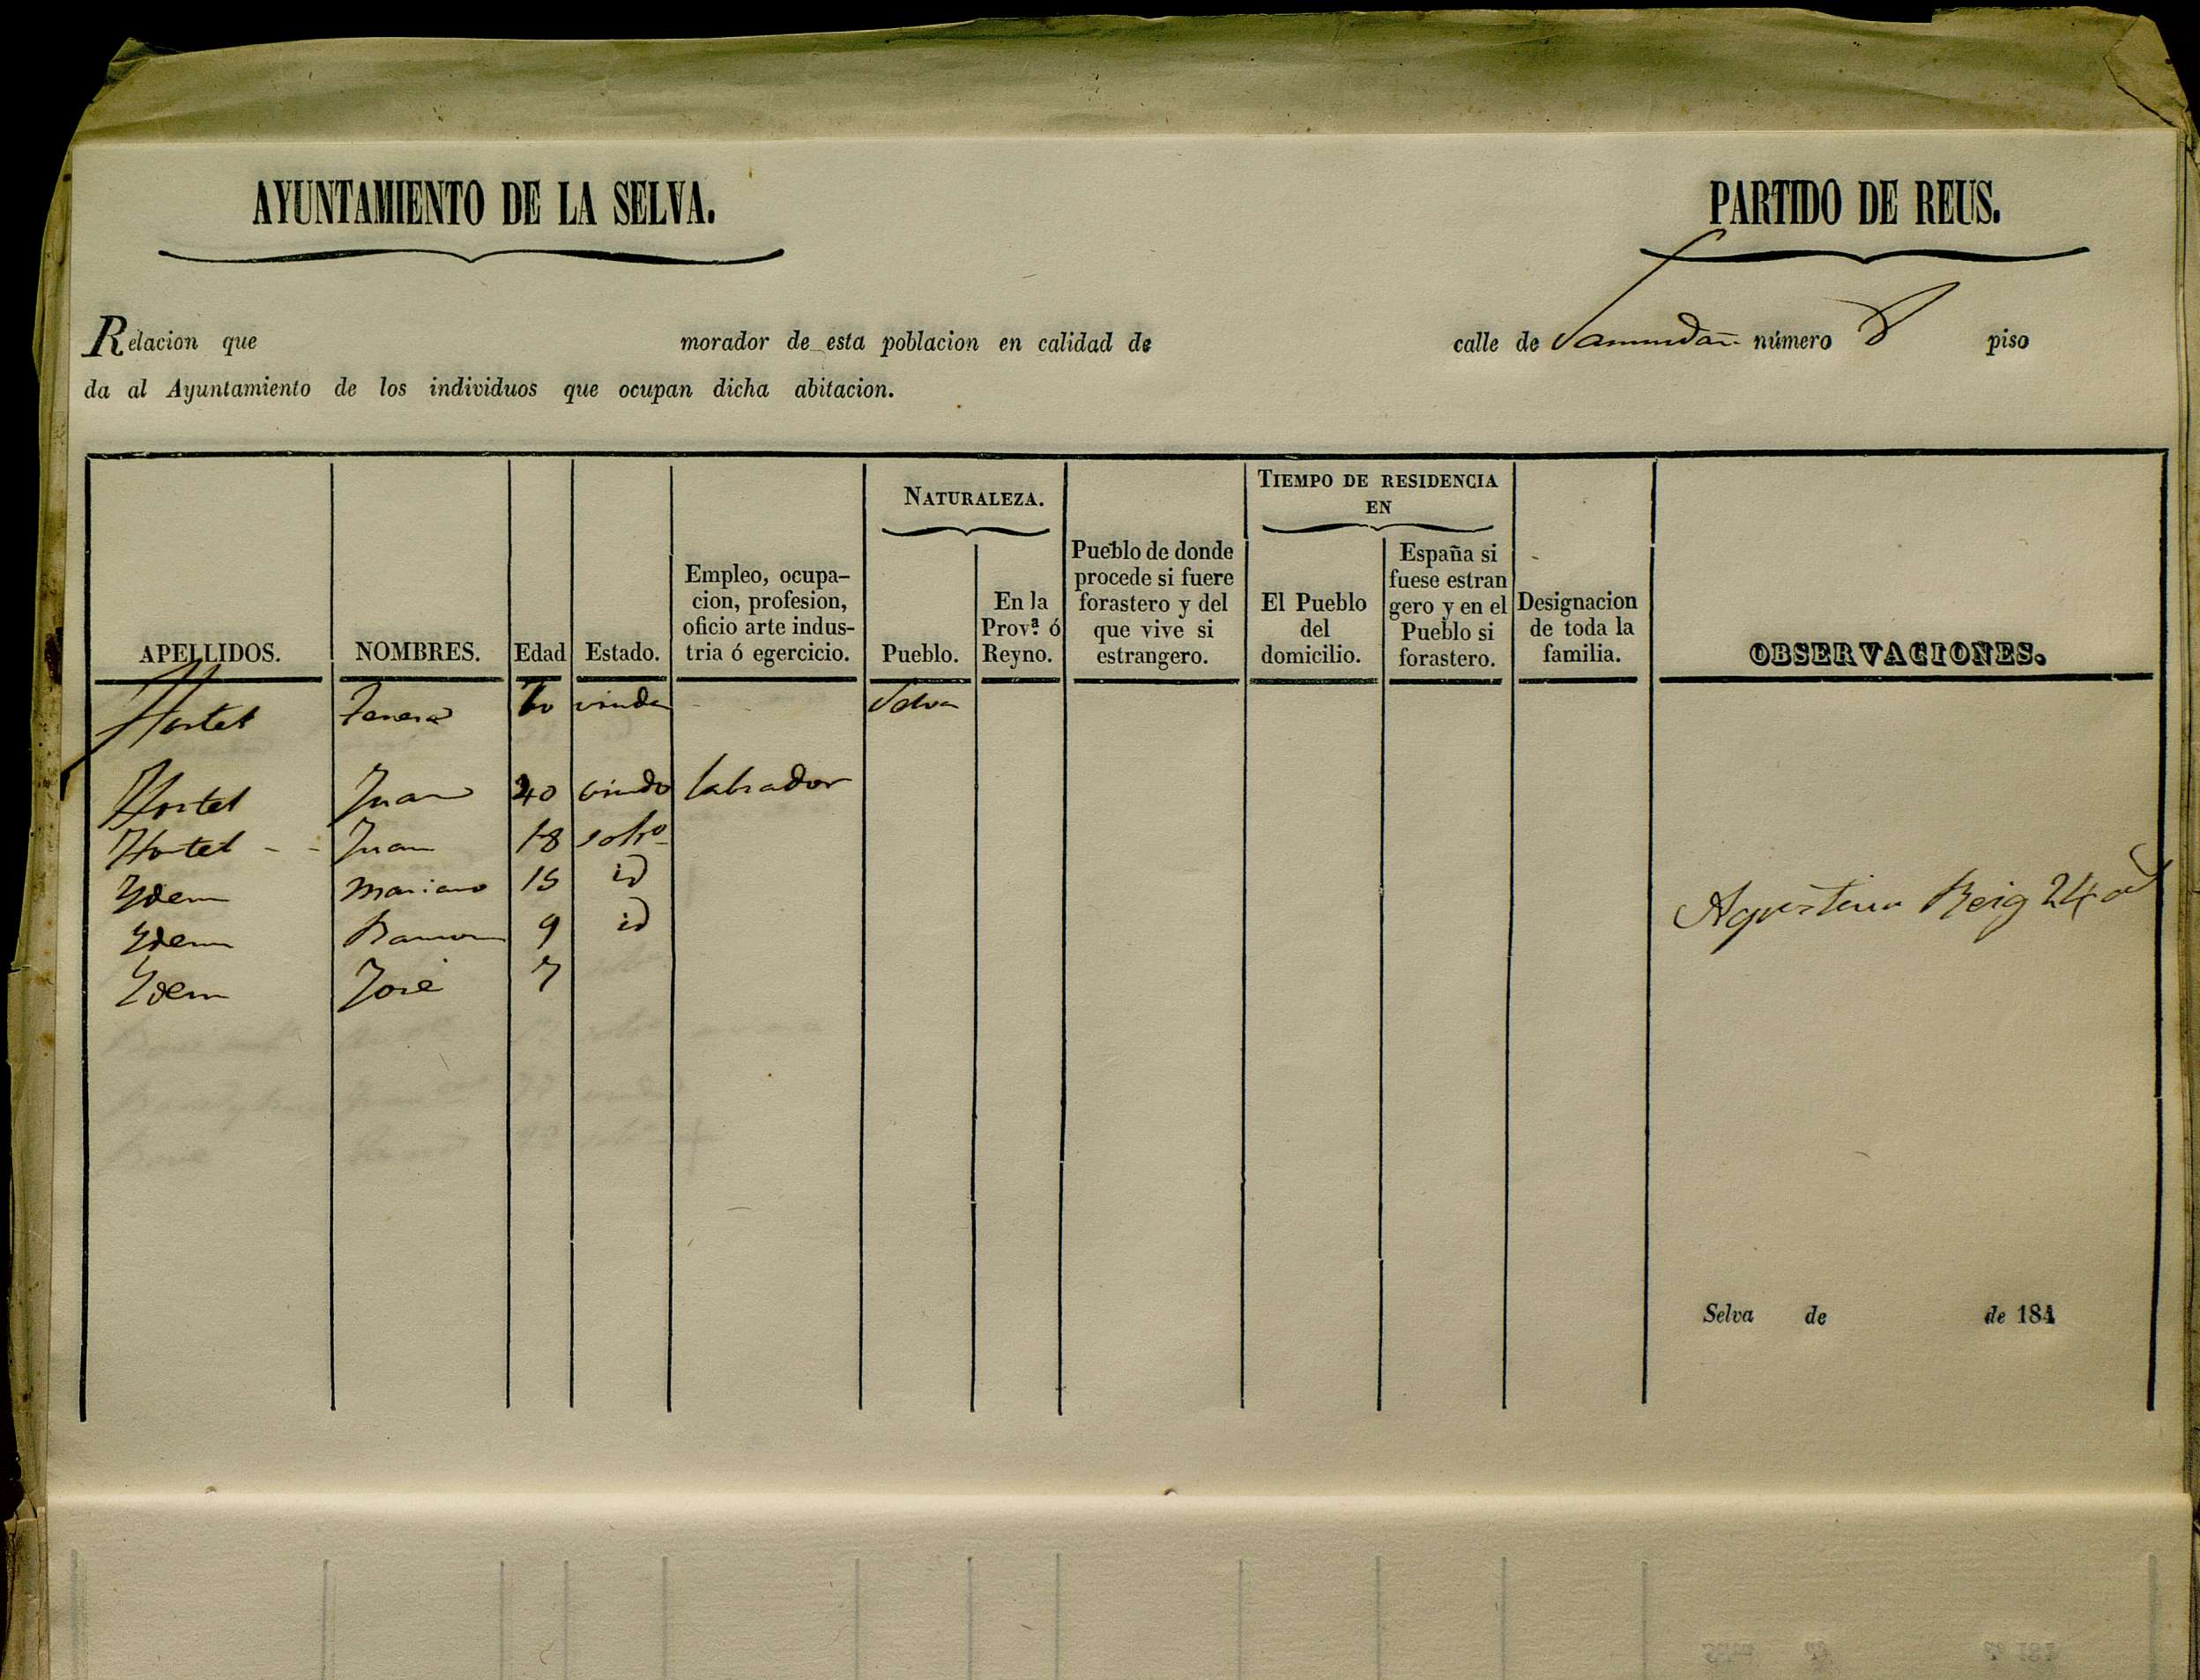 AYUNTAMIENTO DE LA SELVA.
PARTIDO DE REUS.
Relacion que morador de esta poblacion en calidad de calle de número 8 piso
da al Ayuntamiento de los individuos que ocupan dicha abitacion.
APELLIDOS.
NOMBRES.
Edad
Estado.
Empleo, ocupa-
cion, profesion,
oficio arte indus-
tria ó egercicio.
NATURALEZA.
Pueblo.
En la
Prov.ª ó
Reyno.
Pueblo de donde
procede si fuere
forastero y del
que vive si
estrangero.
TIEMPO DE RESIDENCIA
EN
El Pueblo
del
domicilio.
España si
fuese estran
gero y en el
Pueblo si
forastero.
Designacion
de toda la
familia.
OBSERVACIONES.
Hortet viuda Selva
Hortet Juan 40 viudo labrador
Hortet - - Juan 18 solto
Ydem Mariano 15 id
Ydem Ramon 9 id
Ydem José 7
Reig 24
Selva de de 184